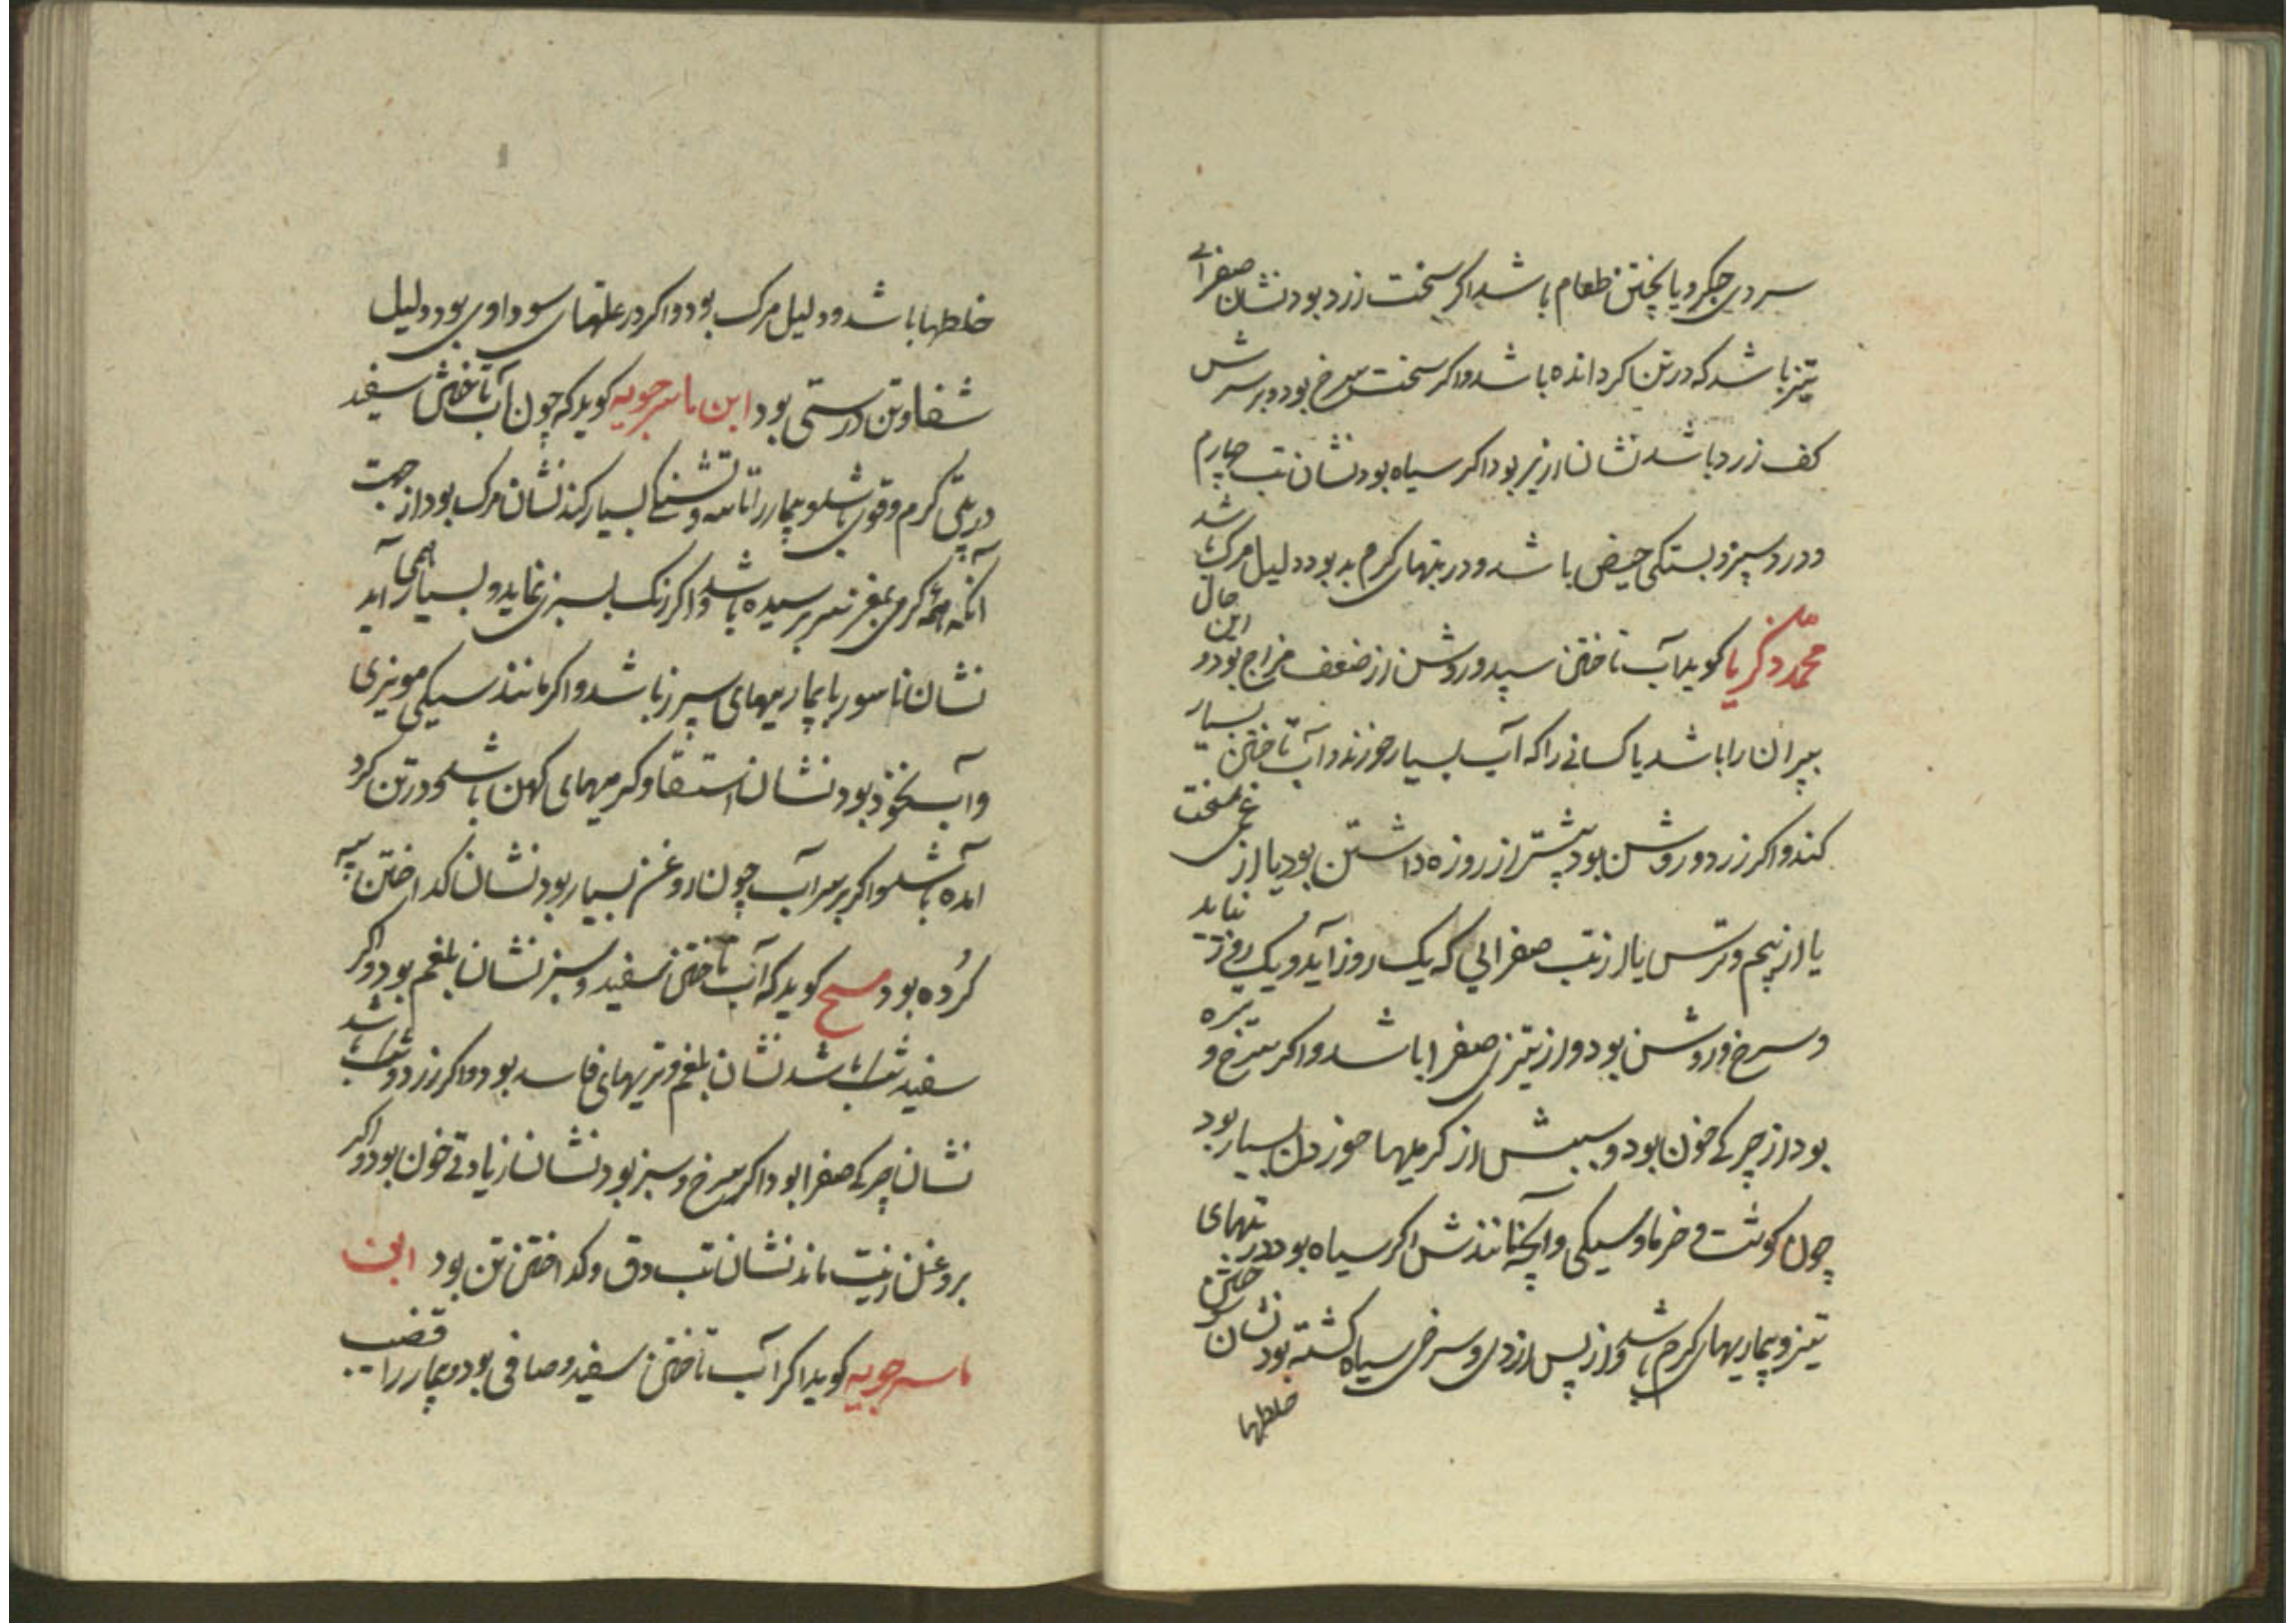 سردی جگر و ناپختن طعام باشد اگر سخت زرد بود نشان صفرائے
تیز باشد که در تن کرد آمده باشد و اگر سخت سرخ بود و بر سرش
کف زرد باشد نشان بود اگر سیاه بود نشان تب چهارم
و درد سپرز و بستکی حیض باشد و در تبهای کرم بد بود دلیل مرک باشد
محمد زکریا کوید آب تاختن سپید و روشن از ضعف مزاج بود و این حال
پیران را باشد یا کسانے را که آب بسیار خورند و آب تاختن بسیار
کند و اکر زرد و روشن بود پیشتر از روزه داشتن بود یا از غمی سخت
یا از بیم و ترس یا از تب صفرایی که یک روز آید و یک روز نیاید
و سرخ و روشن بود و از تیزی صفرا باشد و اکر سرخ و تیره
بود از چیرکے خون بود و سببش از کرمیها خوردن بسیار بود
چون کوشت و خرما و سیکی و آنچه مانندش اکر سیاه بود در تبهای
تیز و بیماریهای کرم باشد و از پس زردی و سرخی سیاه کشته بود نشان
خلطها
خلطها باشد و دلیل مرک بود و اکر در علتهای سوداوی بود دلیل
شفا و تن درستی بود ابن ماسرجویه کوید که چون آب تاختن سفید
در تبی کرم و قوی باشد و بیمار را تاسه و تشنکے بسیار کند نشان مرک بود از جهت
آنکه همه کرمی بمغز سر بر رسیده باشد و اکر رنک بسبزی نماید و بسیار همی آید
نشان ناسور یا بیماریهای سپرز باشد و اکر مانند سیکی مویزی
و آب نخود بود نشان استسقا و کرمیهای کهن باشد و در تن کرد
آمده باشد و اکر بر سر آب چون روغن بسیار بود نشان کداختن پیه
کرده بود مسیح کوید که آب تاختن سفید و سبز نشان بلغم بود و اکر
سفید باشد نشان بلغم و تریهای فاسد بود و اکر زرد و باشد
نشان چیرکے صفرا بود و اکر سرخ و سبز بود نشان زیادتے خون بود و اکر
بروغن زیت ماند نشان تب دق و کداختن تن بود ابن
ماسرجویه کوید اکر آب تاختن سفید و صافی بود و بیمار را قضیب